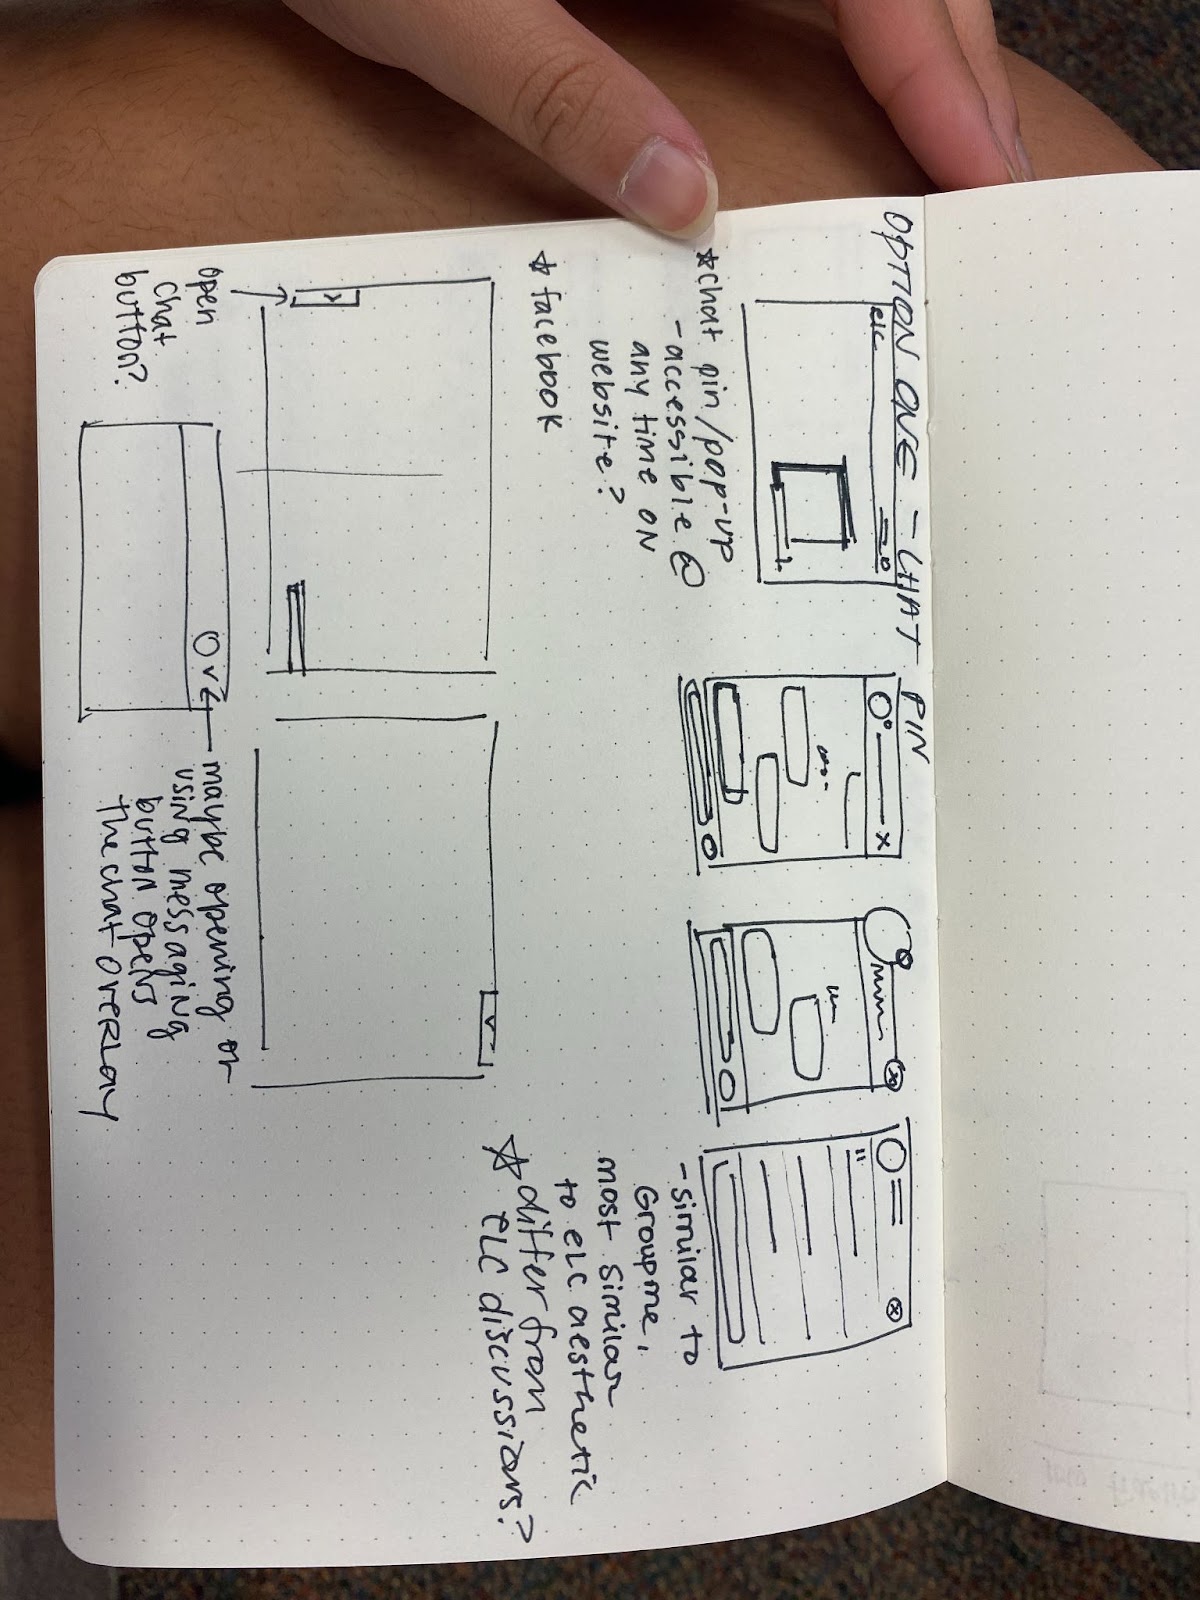 OPTION ONE - CHAT PIN
elc
☆ chat pin/pop-up
- accessible @
any time on
website?
☆ facebook
- similar to
Groupme,
most similar
to eLC aesthetic
☆ differ from
eLC discussions?
open
chat
button?
maybe opening or
using messaging
button opens
the chat overlay